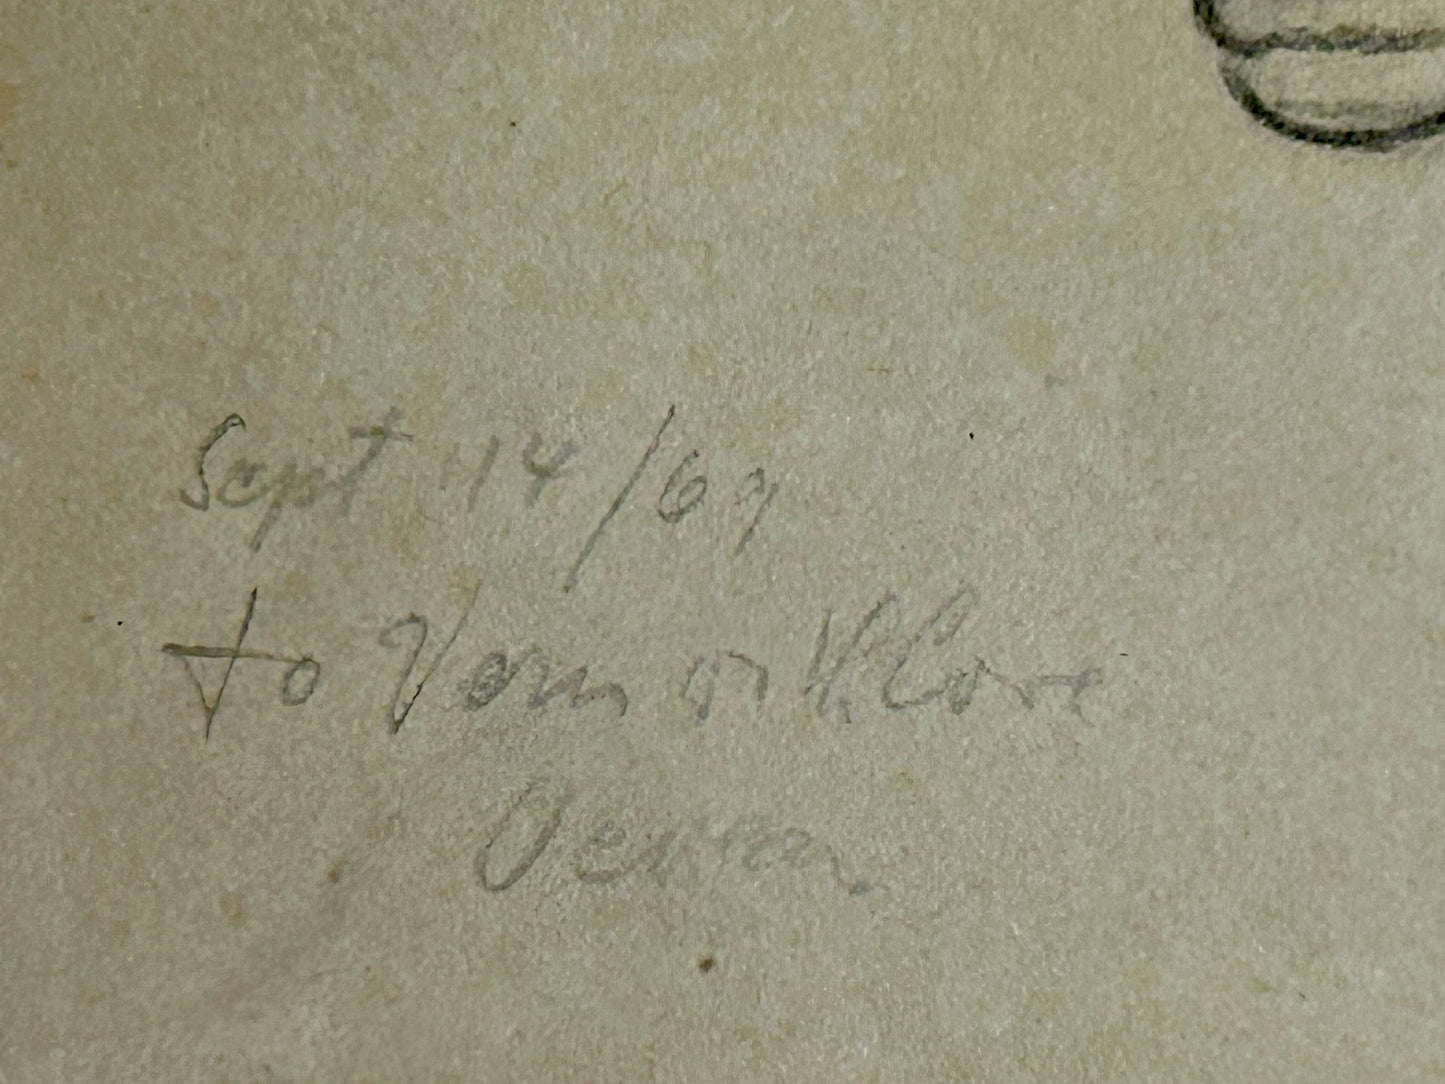 Sept 14/69
to Vern with Love